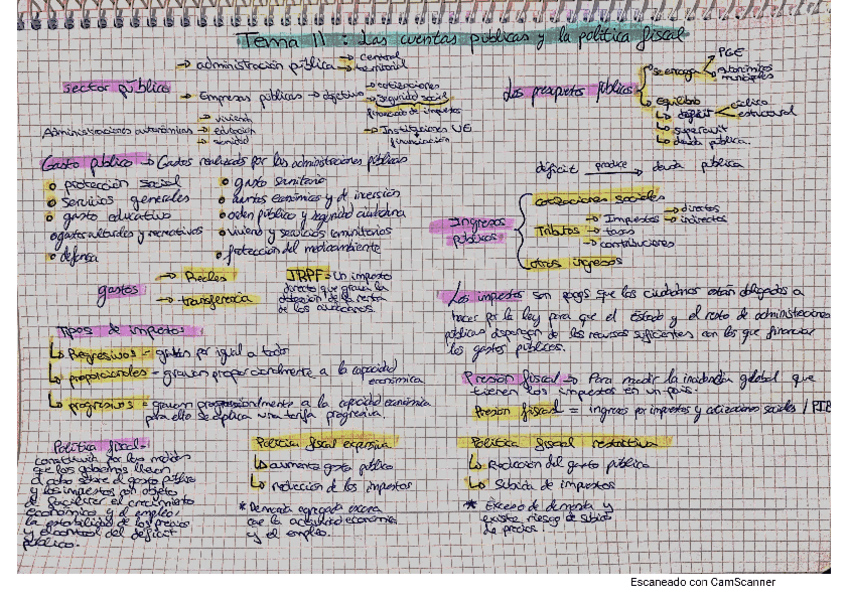 Tema 11: Las cuentas públicas y la política fiscal
sector público
→ administración pública → central
→ territorial
→ Empresas públicas → objetivo
→ cotizaciones
→ Seguridad social
financiado de impuestos
→ Instituciones UE
financiación
Administraciones autonómicas → vivienda
→ educación
→ sanidad
Los presupuestos públicos
se encarga
PGE
autonómicos
municipales
Equilibrio
↳ déficit
cíclico
estructural
↳ superavit
↳ deuda pública.
déficit produce → deuda pública
Gasto público → Gastos realizados por las administraciones públicas
o protección social
o servicios generales
o gasto educativo
o gastos culturales y recreativos
o defensa
o gasto sanitario
o asuntos económicos y de inversión
o orden público y seguridad ciudadana
o vivienda y servicios comunitarios
o protección del medioambiente
Ingresos públicos
cotizaciones sociales
Tributos → Impuestos → directos
→ indirectos
→ tasas
→ contribuciones
otros ingresos
gastos → Reales
→ transferencia
IRPF = Un impuesto
directo que grava la
obtención de la renta
de los ciudadanos.
Los impuestos son pagos que los ciudadanos están obligados a
hacer por la ley para que el Estado y el resto de administraciones
públicas dispongan de los recursos suficientes con los que financiar
los gastos públicos.
Tipos de impuestos
↳ Regresivos = gravan por igual a todo
↳ proporcionales - gravan proporcionalmente a la capacidad
económica
↳ progresivos = gravan progresionalmente a la capacidad económica
para ello se aplica una tarifa progresiva.
Presión fiscal → Para medir la incidencia global que
tienen los impuestos en un país.
Presión fiscal = ingresos por impuestos y cotizaciones sociales / PIB
Política fiscal-
constituida por las medidas
que los gobiernos llevan
a cabo sobre el gasto público
y los impuestos con objeto
de facilitar el crecimiento
económico y el empleo,
la estabilidad de los precios
y el control del déficit
público.
Política fiscal expansiva
↳ aumento gasto público
↳ reducción de los impuestos
* Demanda agregada
que la actividad económica
y el empleo.
Política fiscal restrictiva
↳ Reducción del gasto público
↳ Subida de impuestos
* Exceso de demanda y
existe riesgo de subida
de precios.
Escaneado con CamScanner